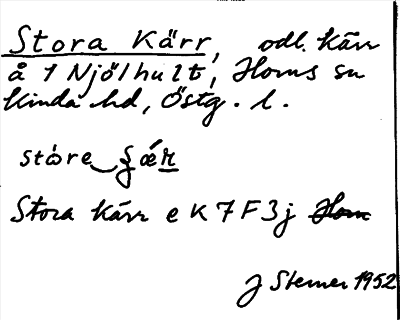 Stora Kärr, odl. kärr
å 1 Njölhult, Horns sn
Kinda hd, Östg. l.
stóre ʃǽʀ
Stora Kärr e K 7 F 3 j Horn
J Sterner 1952